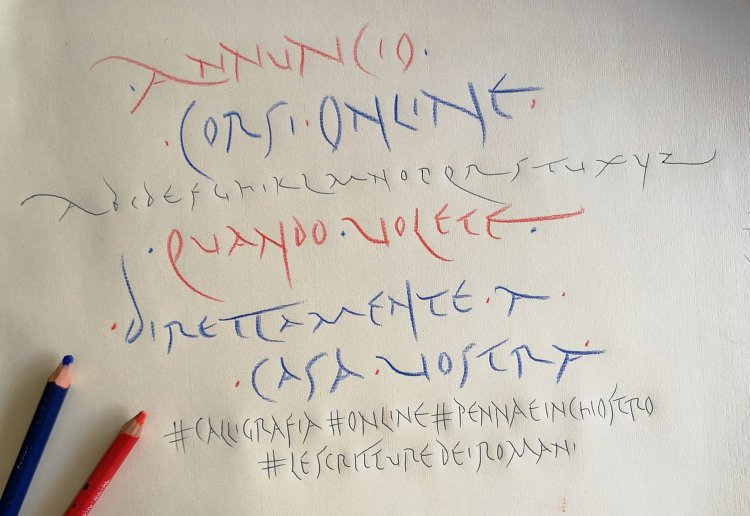 ·ANNUNCIO·
·CORSI·ONLINE·
AbCdEFGHIKLMNOPQRSTUXYZ
·QUANDO·VOLETE·
·dIRETTAMENTE·A·
·CASA·VOSTRA·
#CALLIGRAFIA #ONLINE #PENNAEINCHIOSTRO
#LESCRITTUREDEIROMANI